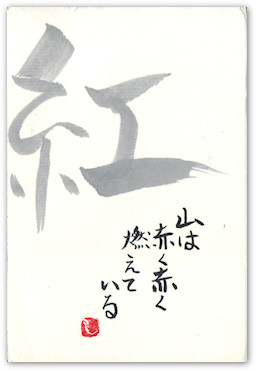 紅
山は
赤く赤く
燃えて
いる